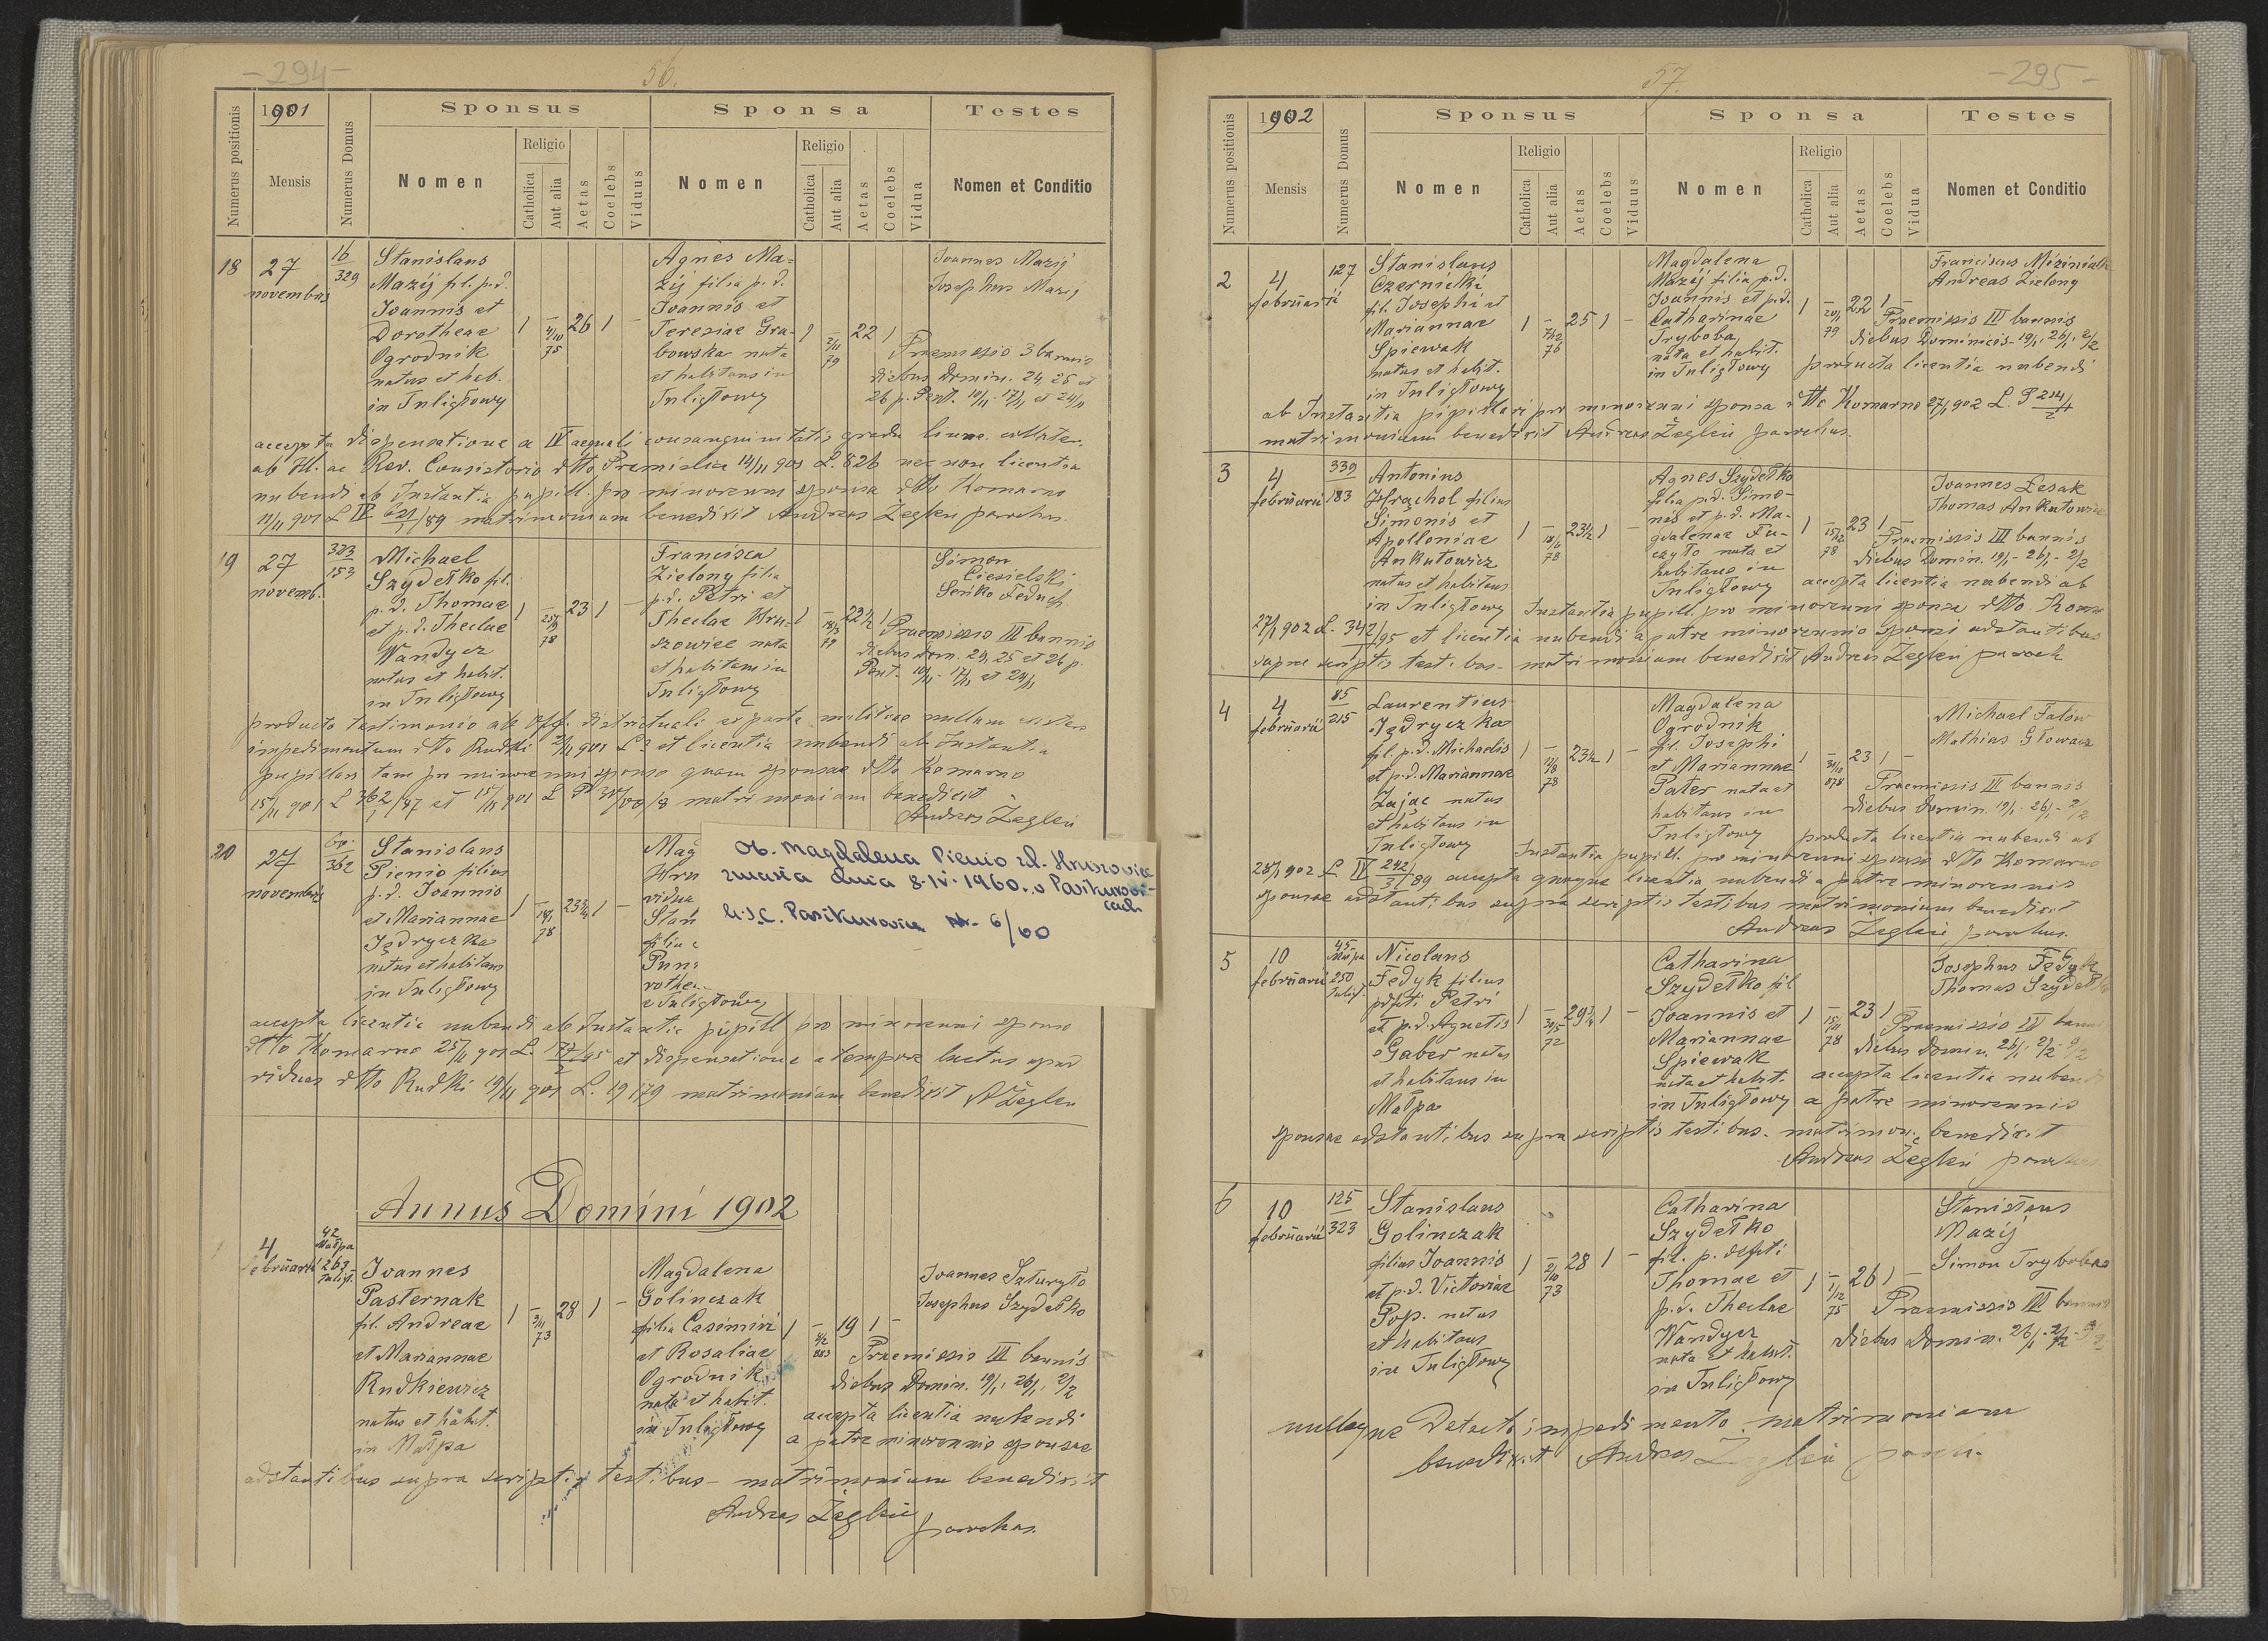 - 294 -
56.
1901
Numerus positionis
Mensis
Numerus Domus
Sponsus
Sponsa
Testes
Nomen
Religio
Catholica
Aut alia
Aetas
Coelebs
Viduus
Nomen
Religio
Catholica
Aut alia
Aetas
Coelebs
Vidua
Nomen et Conditio
18
27
novembris
16
329
Stanislaus
Mazij fil. p.d.
Joannis et
Dorotheae
Ogrodnik
natus et hab.
in Tuligłowy
1
26 1 -
Agnes Ma=
zij filia p.d.
Joannis et
Teresiae Gra-
bowska nata
et habitans in
Tuligłowy
1
22 1
Joannes Mazij
Josephus Mazij
Praemissis 3 bannis
diebus Domin. 24, 25 et
26 p. Pent. 10/11 - 17/11 et 24/11
accepta dispensatione a IV aequali consanguinitatis gradu
ab Ill. ac Rev. Consistorio dtto Premisliae 14/11 901 L. 826 nec non licentia
nubendi ab Instantia pupill. pro minorenni sponsa dtto Komarno
matrimonium benedixit Andreas Żegleń parochus.
19
27
novemb.
323
153
Michael
Szydełko fil.
p.d. Thomae
et p.d. Theclae
Wandycz
natus et habit.
in Tuligłowy
1
78
23 1 -
Francisca
Zielony filia
p.d. Petri et
Theclae Hru-
szowiec nata
et habitans in
Tuligłowy
1
79
22½ 1
Simon
Ciesielski
Seńko Feduch
Praemissis III bannis
diebus dom. 24, 25 et 26 p.
Pent. 10/11 - 17/11 et 24/11
producto testimonio ab off. districtuali ex parte militiae nullum
impedimentum dtto Rudki et licentia nubendi ab Instantia
pupillari tam pro minorenni sponso quam sponsae dtto Komarno
matrimonium benedixit
Andreas Żegleń
20
27
novembris
362
Stanislaus
Pienio filius
p.d. Joannis
et Mariannae
Jędryczka
natus et habitans
in Tuligłowy
1
78
23¾ 1 -
Mag
Hru
vidua
Stan
filia
rothe
e Tuligłowy
Ob. Magdalena Pienio zd. Hruszowiec
zmarła dnia 8.IV.1960. w Pasikurowi-
cach
U.S.C. Pasikurowice nr. 6/60
accepta licentia nubendi ab Instantia pupill pro minorenni sponso
dtto Komarno 25/11 901 L. et dispensatione a tempore luctus quoad
viduam dtto Rudki 19/11 901 L. 19179 matrimonium benedixit AŻegleń
Annus Domini 1902
4
februarii
42
Małpa
263
Tuligł.
Joannes
Pasternak
fil. Andreae
et Mariannae
Rudkiewicz
natus et habit.
in Małpa
1
73
28 1 -
Magdalena
Golinczak
filia Casimiri
et Rosaliae
Ogrodnik
nata et habit.
in Tuligłowy
1
883
19 1 -
Joannes Saturyło
Josephus Szydełko
Praemissis III bannis
diebus Domin. 19/1, 26/1, 2/2
accepta licentia nubendi
a patre minorennis sponsae
adstantibus supra scriptis testibus - matrimonium benedixit
Andreas Żegleń
parochus.
- 295 -
57.
1902
Numerus positionis
Mensis
Numerus Domus
Sponsus
Sponsa
Testes
Nomen
Religio
Catholica
Aut alia
Aetas
Coelebs
Viduus
Nomen
Religio
Catholica
Aut alia
Aetas
Coelebs
Vidua
Nomen et Conditio
2
4
februarii
127
Stanislaus
Czernicki
fil. Josephi et
Mariannae
Spiewak
natus et habit.
in Tuligłowy
1
76
25 1 -
Magdalena
Mazij filia p.d.
Joannis et p.d.
Catharinae
Tryboba
nata et habit.
in Tuligłowy
1
79
22 1 -
Andreas Zielony
Praemissis III bannis
diebus Dominicis 19/1, 26/1, 2/2
producta licentia nubendi
ab Instantia pupillari pro minorenni sponsa dtto Komarno 27/1 902
matrimonium benedixit Andreas Żegleń parochus.
3
4
februarii
339
183
Antonius
Hrąchol filius
Simonis et
Apolloniae
Ankutowicz
natus et habitans
in Tuligłowy
1
78
23½ 1 -
Agnes Szydełko
filia p.d. Simo-
nis et p.d. Ma-
gdalenae Fu-
czyło nata et
habitans in
Tuligłowy
1
78
23 1 -
Joannes Łesak
Thomas Ankutowicz
Praemissis III bannis
diebus Domin. 19/1 - 26/1 - 2/2
accepta licentia nubendi ab
Instantia pupill. pro minorenni sponsa dtto Koma
27/1 902 L. et licentia nubendi a patre minorennis sponsi adstantibus
supra scriptis testibus - matrimonium benedixit Andreas Żegleń paroch
4
4
februarii
85
215
Laurentius
Jędryczka
fil p.d. Michaelis
et p.d. Mariannae
Zając natus
et habitans in
Tuligłowy
1
78
23½ 1 -
Magdalena
Ogrodnik
fil. Josephi
et Mariannae
Pater nata et
habitans in
Tuligłowy
1
878
23 1 -
Michael Fałów
Mathias Głowacz
Praemissis III bannis
diebus Domin. 19/1 - 26/1 - 2/2
producta licentia nubendi ab
Instantia pupill. pro minorenni sponso dtto Komarno
28/1 902 L IV accepta quoque licentia nubendi a patre minorennis
sponsae adstantibus supra scriptis testibus matrimonium benedixit
Andreas Żegleń parochus.
5
10
februarii
45
Małpa
250
Tuligł.
Nicolaus
Fedyk filius
pdfti Petri
et p.d. Agnetis
Gaber natus
et habitans in
Małpa
1
72
29¾ 1 -
Catharina
Szydełko fil
Joannis et
Mariannae
Spiewak
nata et habit.
in Tuligłowy
1
78
23 1
Josephus Fedyk
Thomas Szydełko
Praemissis III banni
diebus Domin. 26/1, 2/2 9/2
accepta licentia nubendi
a patre minorennis
sponsae adstantibus supra scriptis testibus. matrimon. benedixit
Andreas Żegleń parochus
6
10
februarii
125
323
Stanislaus
Golinczak
filius Joannis
et p.d. Victoriae
Pop. natus
et habitans
in Tuligłowy
1
73
28 1 -
Catharina
Szydełko
fil. p. defti
Thomae et
p.d. Theclae
Wandycz
nata et habit.
in Tuligłowy
1
75
26 1 -
Stanislaus
Mazij
Simon Tryboba
Praemissis III bannis
diebus Domin. 26/1, 2/2
nulloque detecto impedimento matrimonium
benedixit Andreas Żegleń paroch.